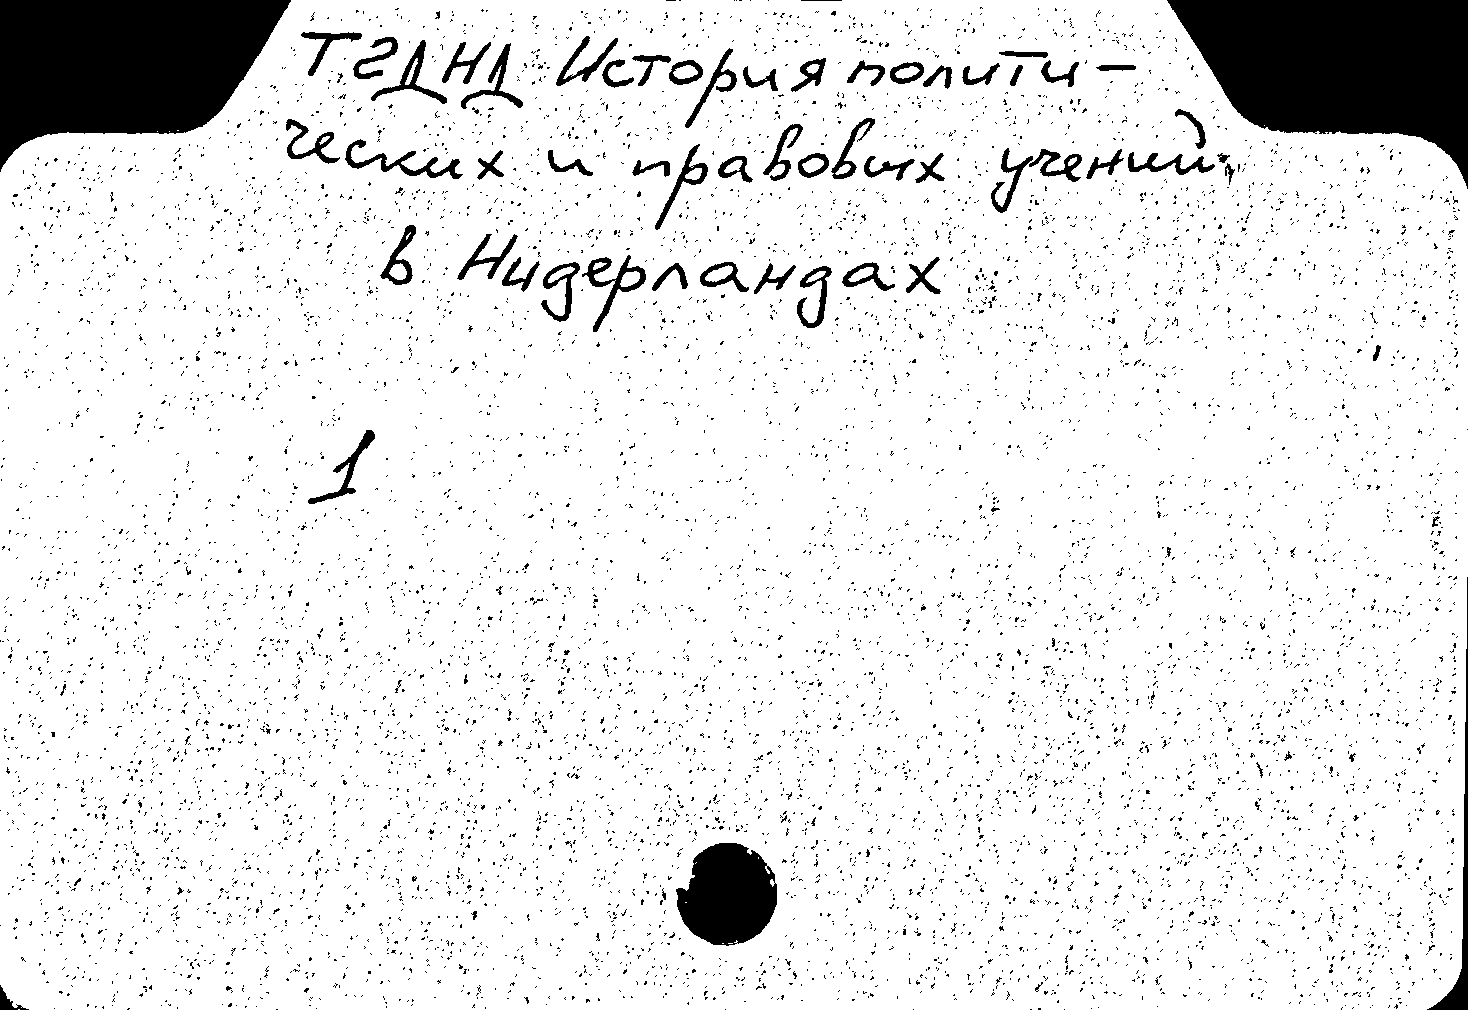 Т2ДНД История полити-
ческих и правовых учений
в Нидерландах
1